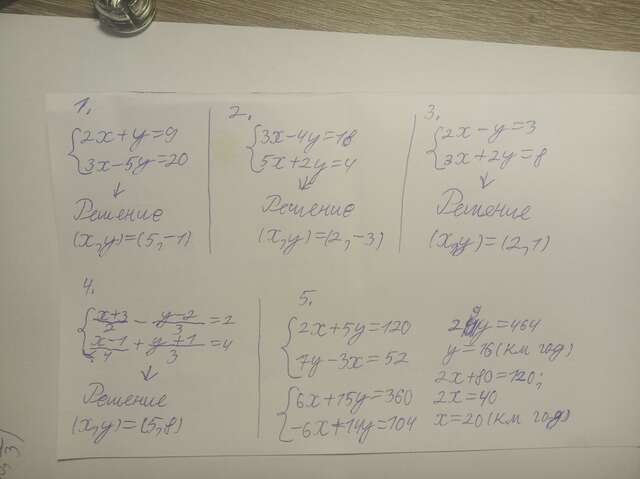 1.
2x+y=9
3x-5y=20
↓
Решение
(x,y)=(5,-1)
2.
3x-4y=18
5x+2y=4
↓
Решение
(x,y)=(2,-3)
3.
2x-y=3
3x+2y=8
↓
Решение
(x,y)=(2,1)
4.
x+3/2 - y-2/3 = 2
x-1/4 + y+1/3 = 4
↓
Решение
(x,y)=(5,8)
5.
2x+5y=120
7y-3x=52
6x+15y=360
-6x+14y=104
29y=464
y=16(км год)
2x+80=120;
2x=40
x=20(км год)